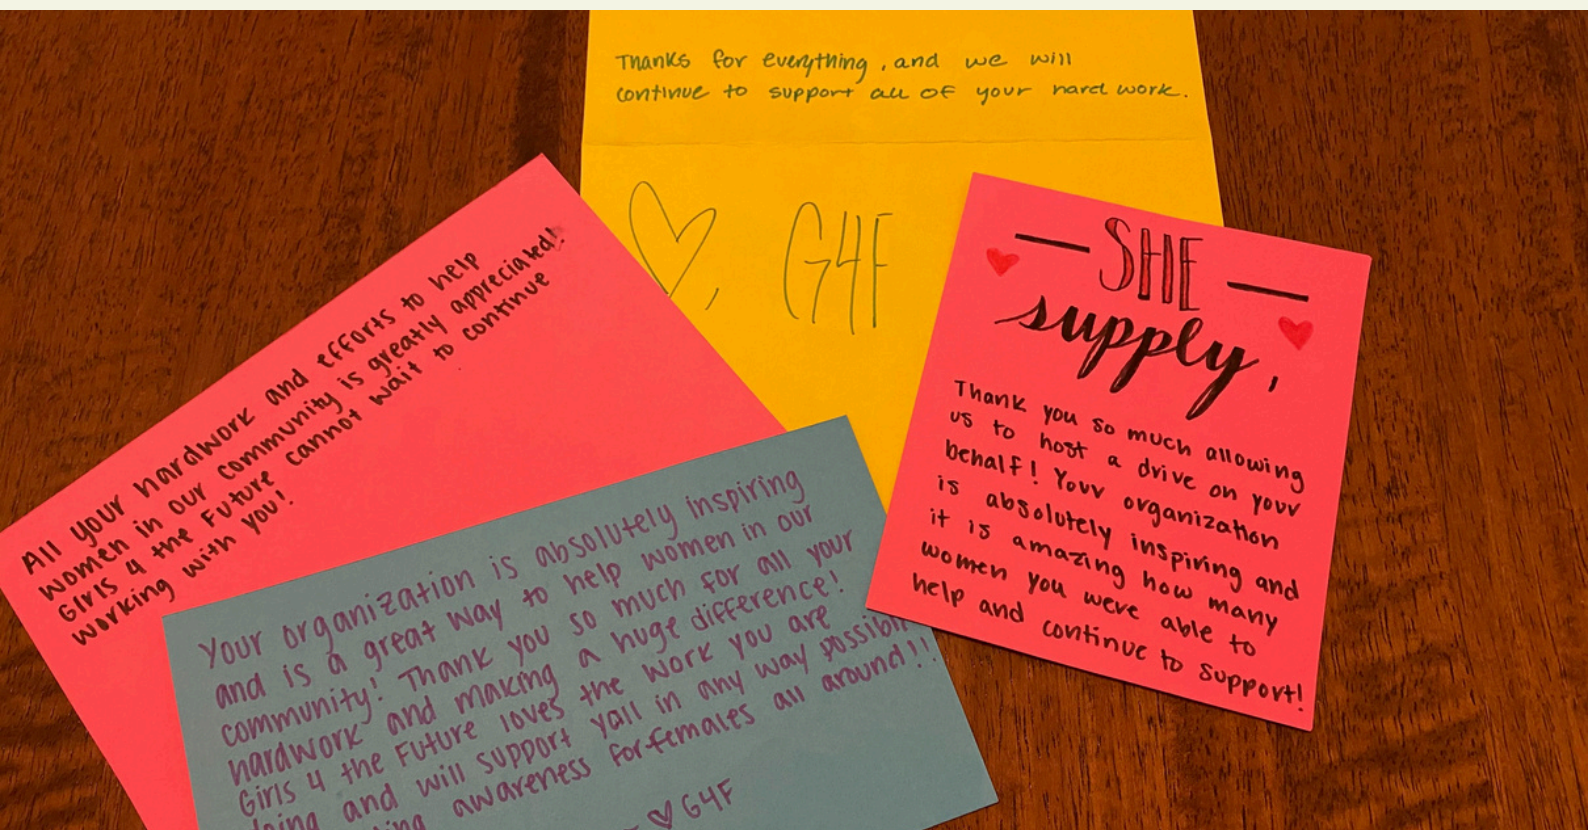 Thanks for everything, and we will
continue to support all of your hard work.
♡, G4F
All your hardwork and efforts to help
women in our community is greatly appreciated!
Girls 4 the Future cannot wait to continue
working with you!
Your organization is absolutely inspiring
and is a great way to help women in our
community! Thank you so much for all your
hardwork and making a huge difference!
Girls 4 the Future loves the work you are
doing and will support yall in any way possible
awareness for females all around!!
♡ G4F
SHE
supply,
Thank you so much allowing
us to host a drive on your
behalf! Your organization
is absolutely inspiring and
it is amazing how many
women you were able to
help and continue to support!